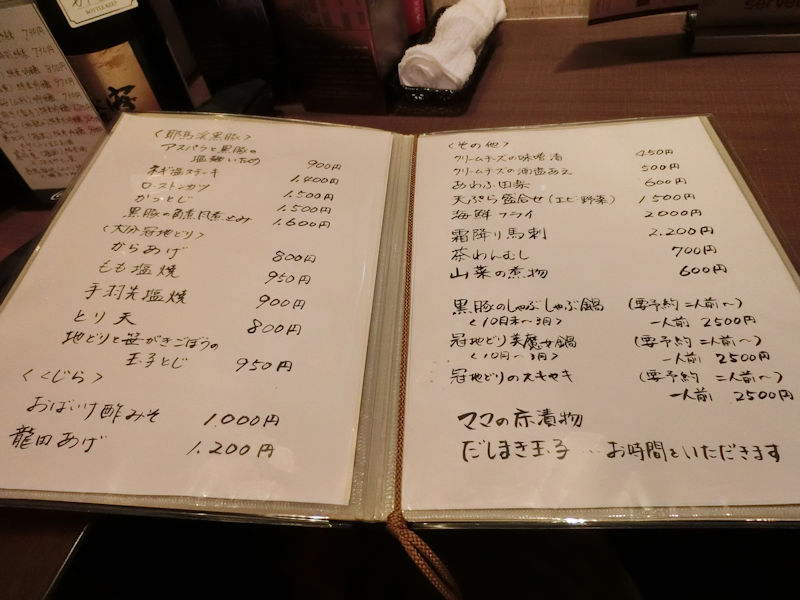 <耶馬渓黒豚>
アスパラと黒豚の
塩麹いため 900円
ネギ塩ステーキ 1,400円
ロースト��カツ 1,500円
かつとじ 1,500円
黒豚の角煮 1,600円
<大分冠地どり>
からあげ 800円
もも塩焼 950円
手羽先塩焼 900円
とり天 800円
地どりと笹がきごぼうの
玉子とじ 950円
<くじら>
おばいけ酢みそ 1,000円
龍田あげ 1,200円
<その他>
クリームチーズの味噌漬 450円
クリームチーズの酒盗あえ 500円
あわふ田楽 600円
天ぷら盛合せ(エビ野菜) 1500円
海鮮フライ 2000円
霜降り馬刺 2,200円
茶わんむし 700円
山菜の煮物 600円
黒豚のしゃぶしゃぶ鍋 (要予約 二人前〜)
<10月末〜3月> 一人前 2500円
冠地どり美魔女鍋 (要予約 二人前〜)
<10月〜3月> 一人前 2500円
冠地どりのスキヤキ (要予約 二人前〜)
一人前 2500円
ママの床漬物
だしまき玉子…お時間をいただきます